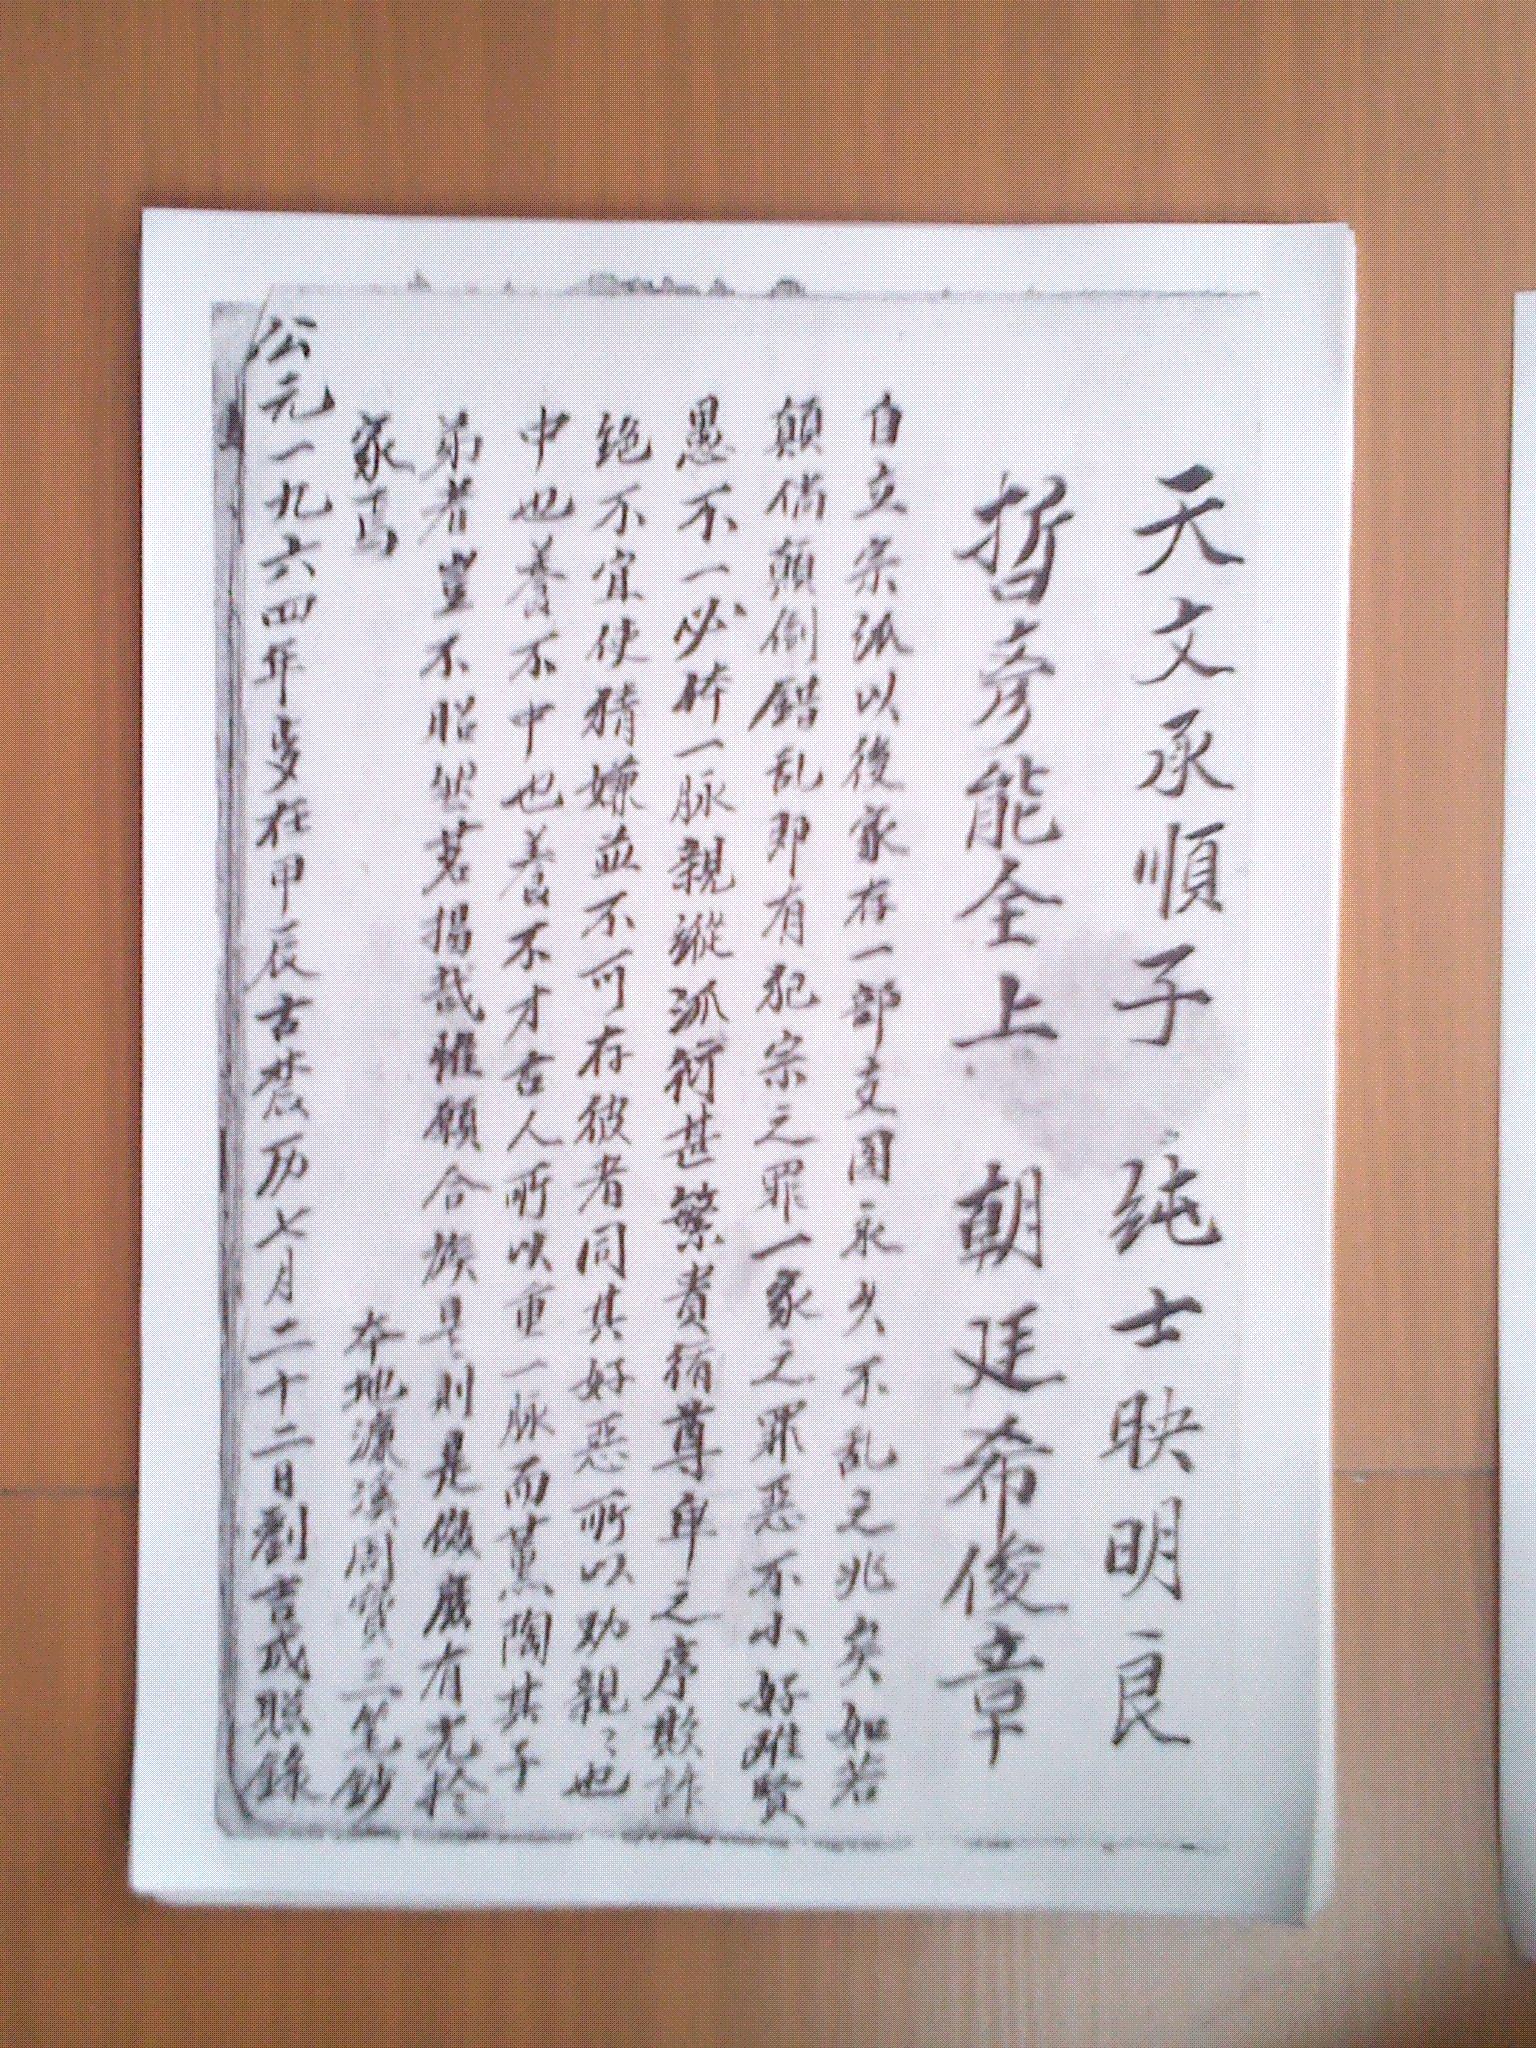 天文承順子 純士映明良
哲彥能全上 朝廷希俊章
自立宗派以後家存一部支図永久不乱之兆矣如若
顛倘顛倒錯乱即有犯宗之罪一家之罪惡不小好难賢
愚不一必体一脉親縱派衍甚繁貴循尊卑之序欺詐
絶不宜使猜嫌並不可存彼者同其好惡所以劝親〻也
中也養不中也養不才古人所以重一脉而薰陶其子
弟者豈不昭然若揭哉惟願合族是則是傚庶有光於
家
本地濂溪周 筆鈔
公元一九六四年歲在甲辰古農历七月二十二日劉吉武照錄